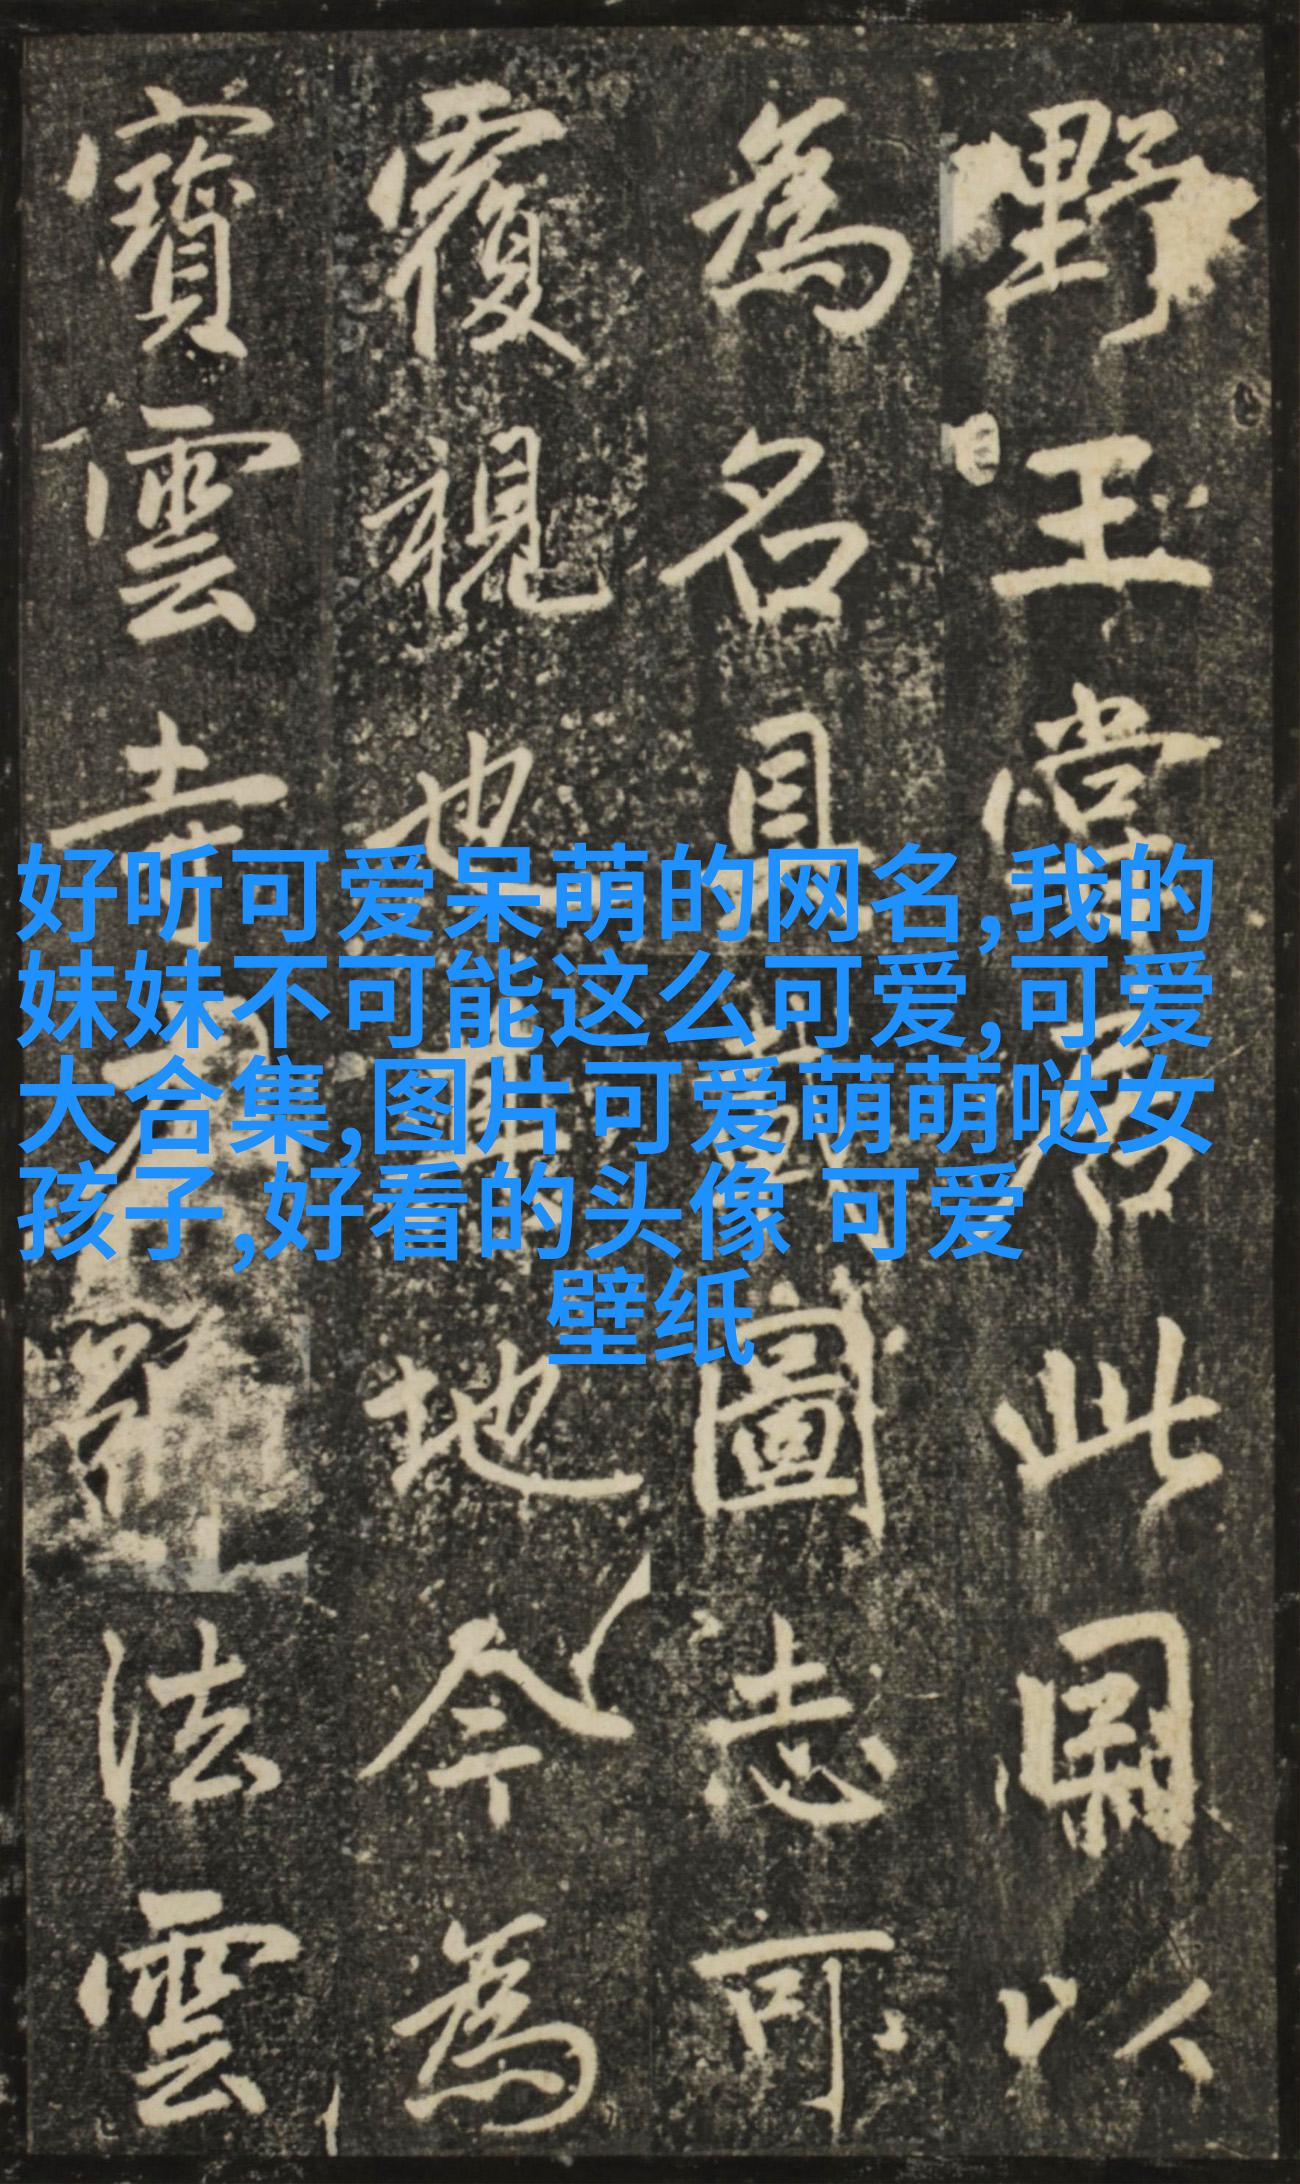 野王嘗居此以
為名具載圖志可
覆視也其地今為
寶雲寺法雲
好听可爱呆萌的网名,我的
妹妹不可能这么可爱,可爱
大合集,图片可爱萌萌哒女
孩子,好看的头像 可爱
壁纸